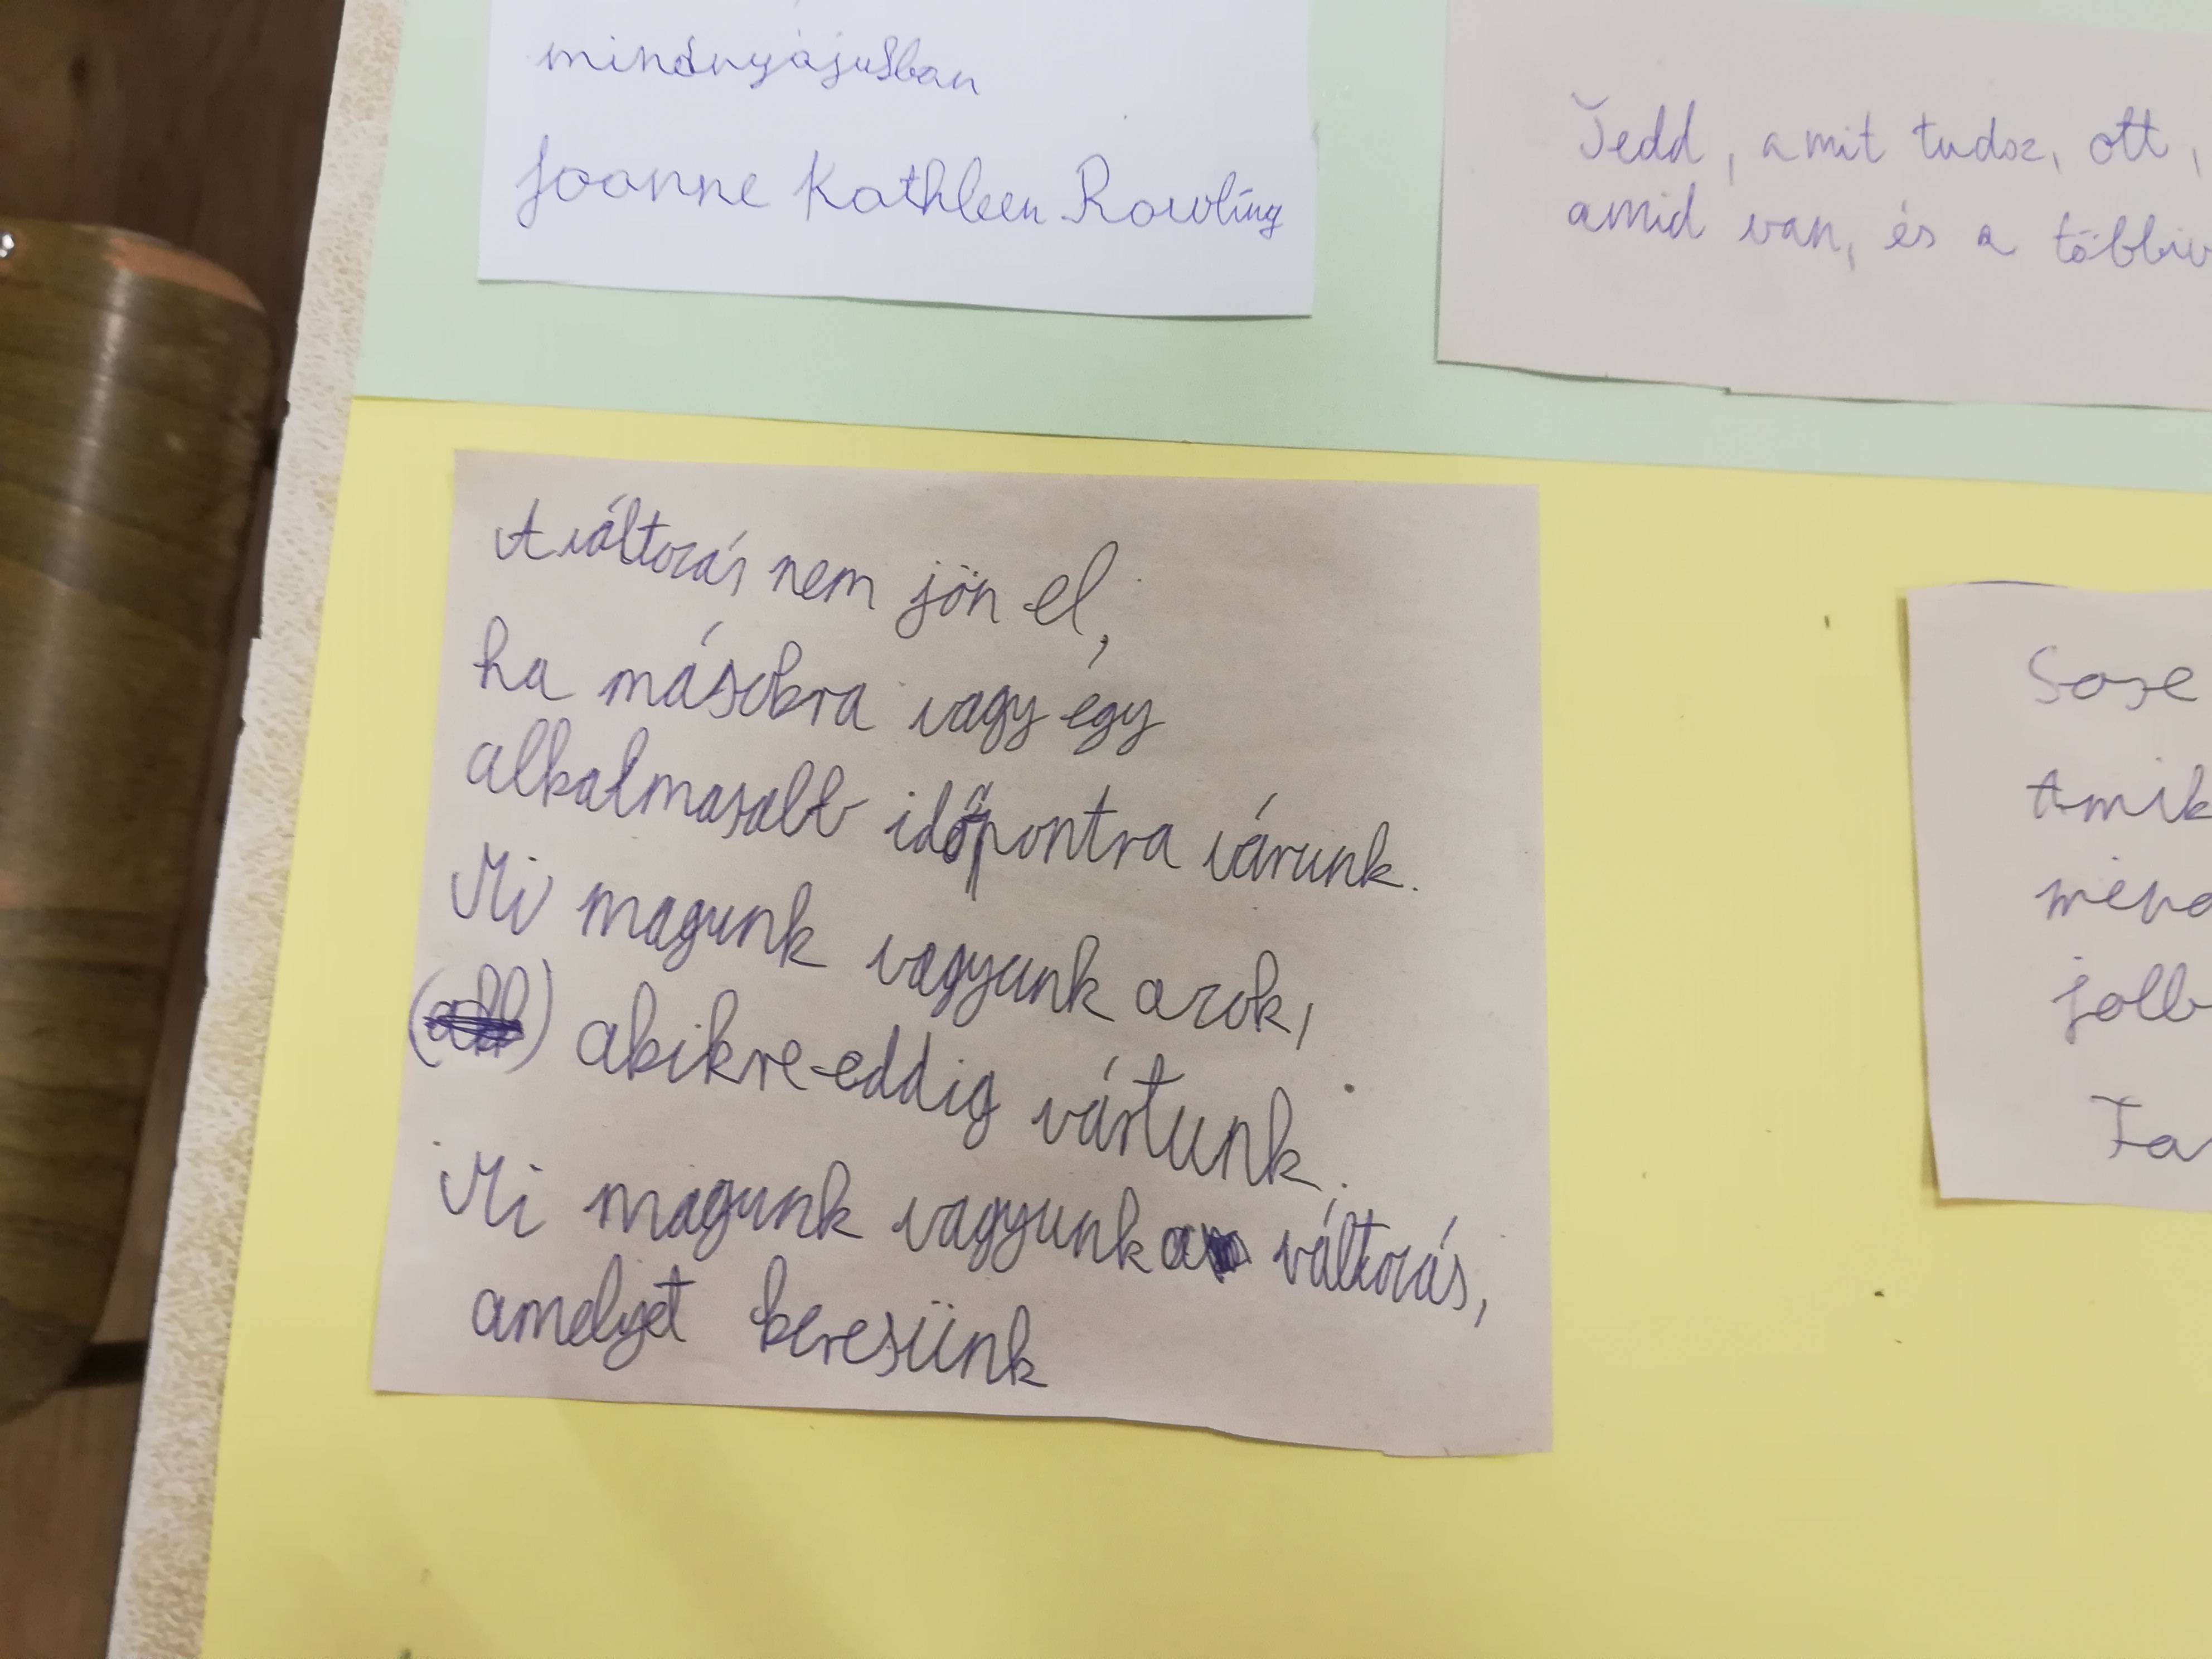 mindnyájusban
Joanne Kathleen Rowling
Tedd, amit tudsz, ott,
amid van, és a többiv
A változás nem jön el,
ha másokra vagy egy
alkalmasabb időpontra várunk.
Mi magunk vagyunk azok,
akikre eddig vártunk.
Mi magunk vagyunk a változás,
amelyet keresünk
Sose
Amik
jobb
Fa